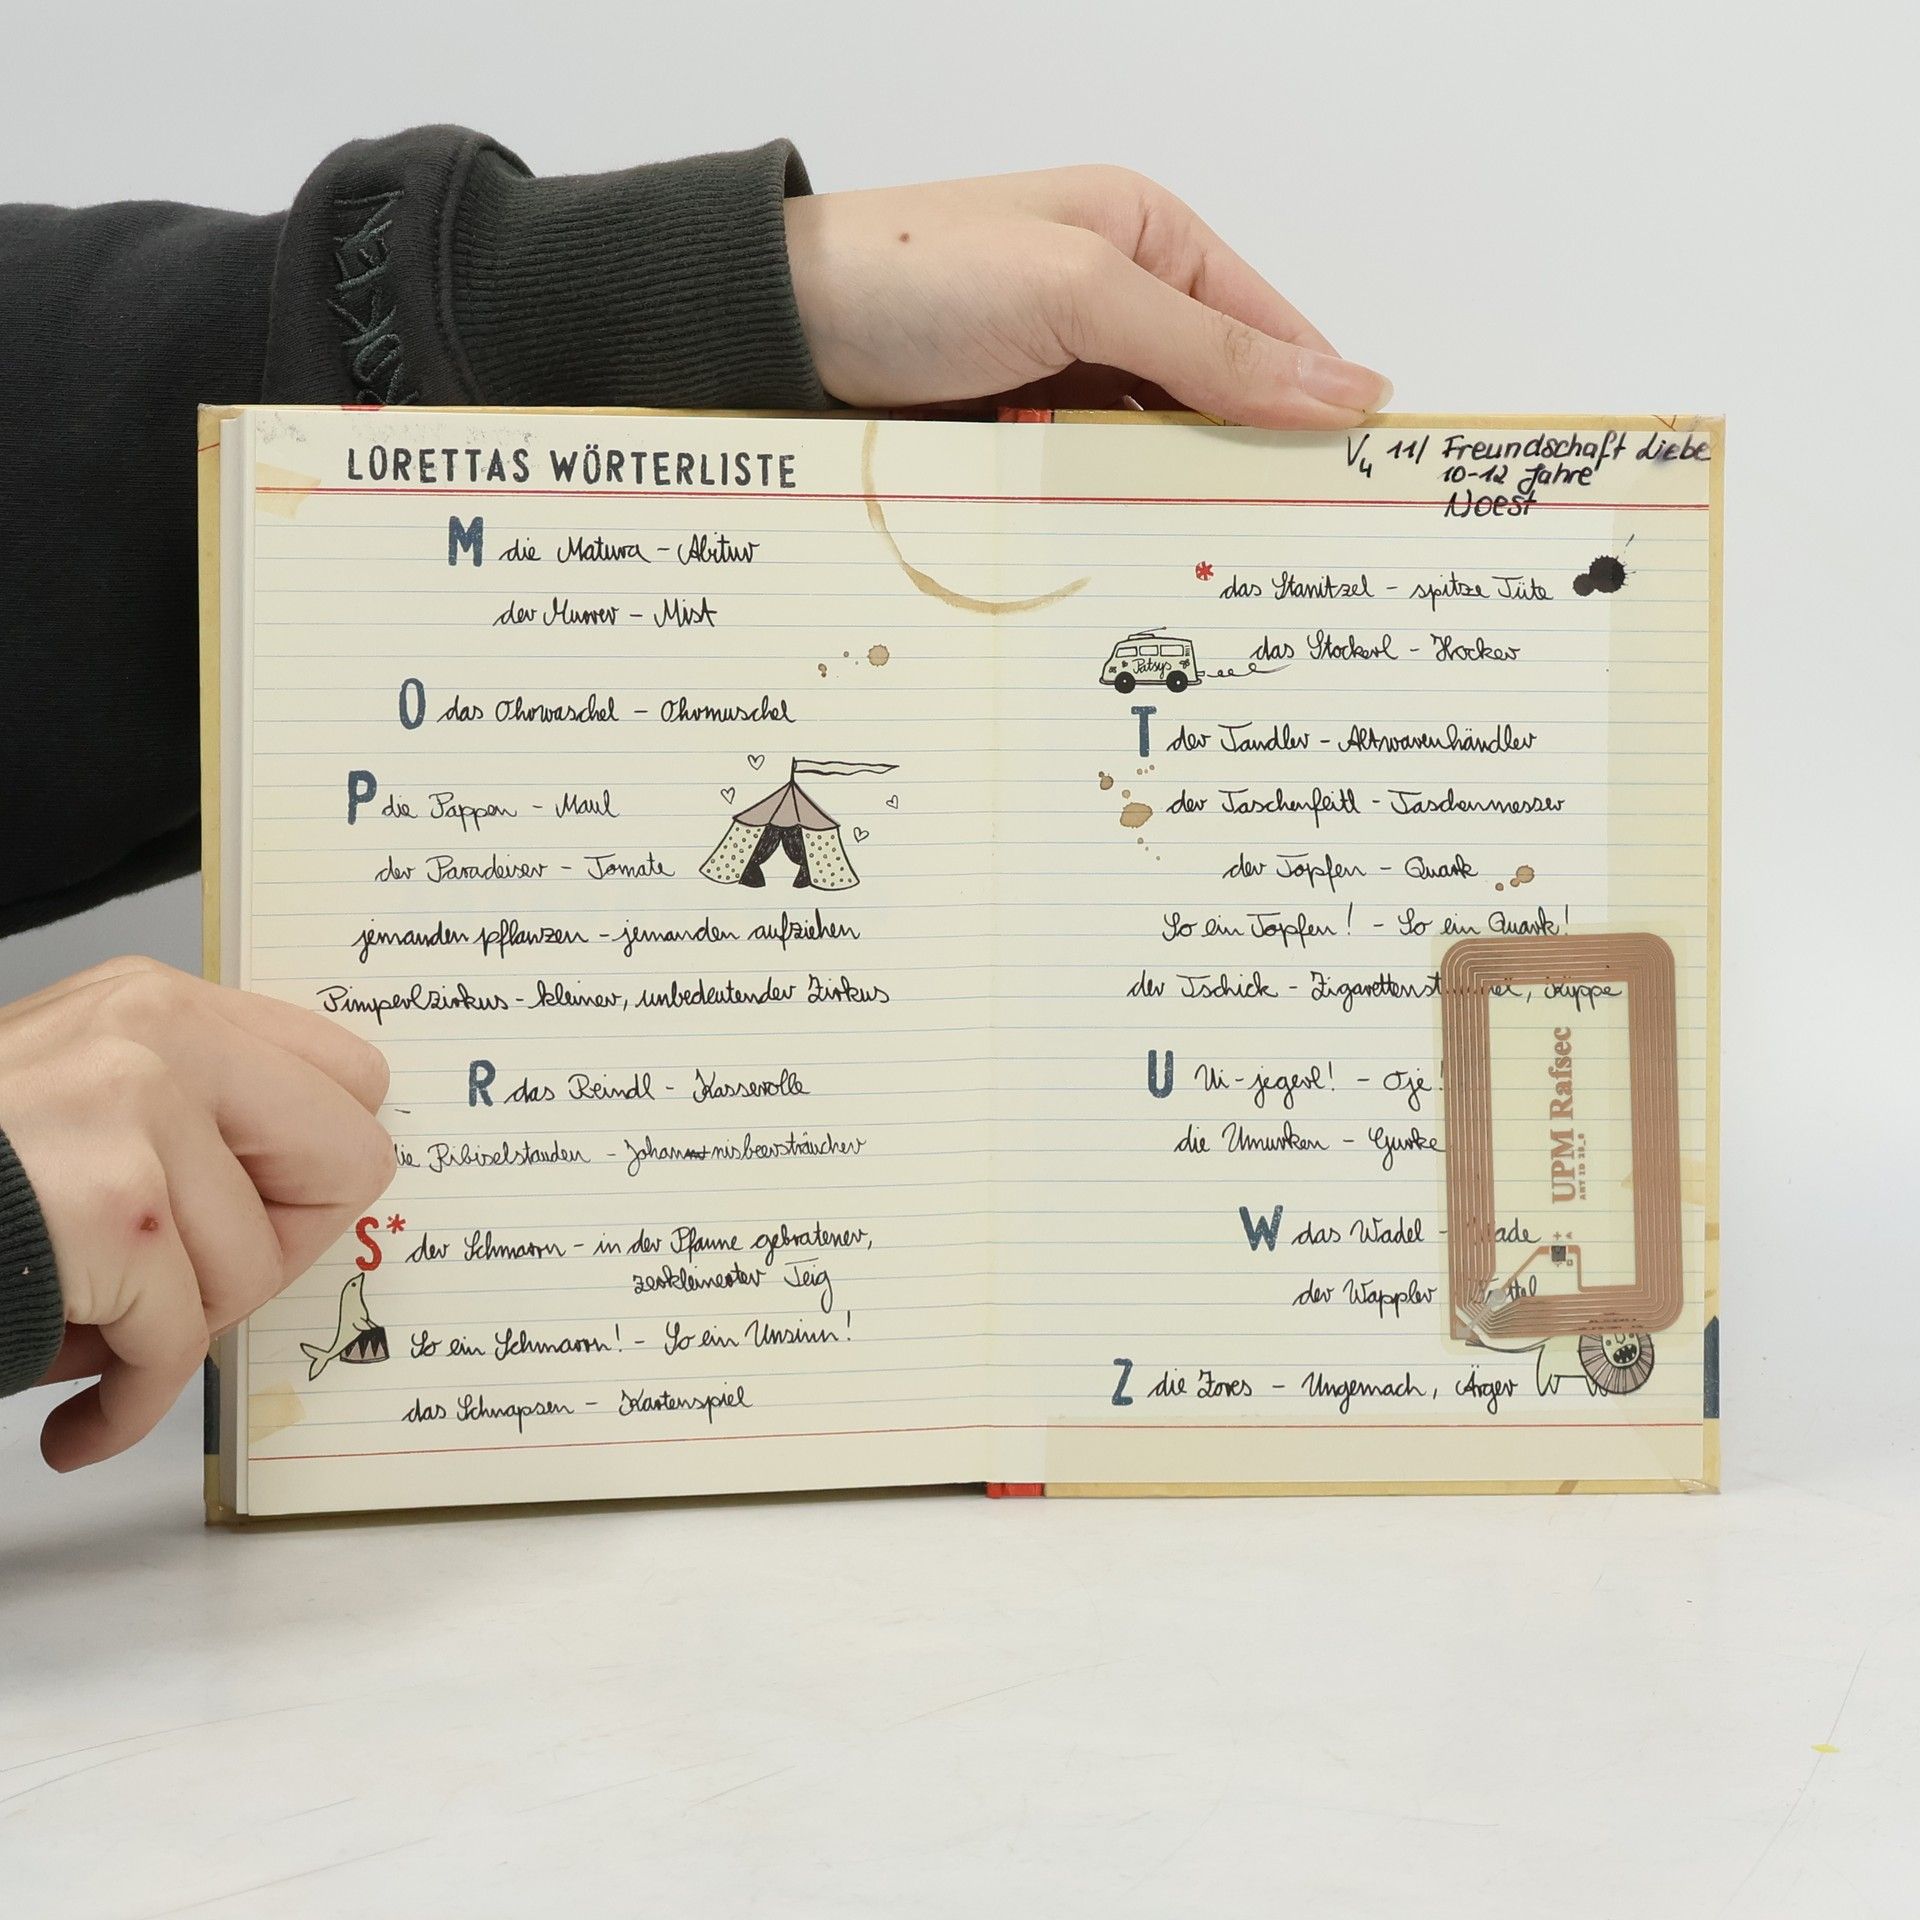 LORETTAS WÖRTERLISTE
M die Matura - Abitur
der Murrer - Mist
O das Ohrwaschel - Ohrmuschel
P die Pappen - Maul
der Paradeiser - Tomate
jemanden pflanzen - jemanden aufziehen
Pimperlzirkus - kleiner, unbedeutender Zirkus
R das Reindl - Kasserolle
die Ribiselstauden - Johannisbeersträucher
S* der Schmarrn - in der Pfanne gebratener,
zerkleinerter Teig
So ein Schmarrn! - So ein Unsinn!
das Schnapsen - Kartenspiel
V4 11/ Freundschaft Liebe
10-12 Jahre
Noest
* das Stanitzel - spitze Tüte
das Stockerl - Hocker
Patsys
T der Tandler - Altwarenhändler
der Taschenfeitl - Taschenmesser
der Topfen - Quark
So ein Topfen! - So ein Quark!
der Tschick - Zigarettenstummel, Kippe
U Ui-jegerl! - Oje!
die Umurken - Gurke
W das Wadel - Wade
der Wappler - Trottel
Z die Zores - Ungemach, Ärger
UPM Rafsec